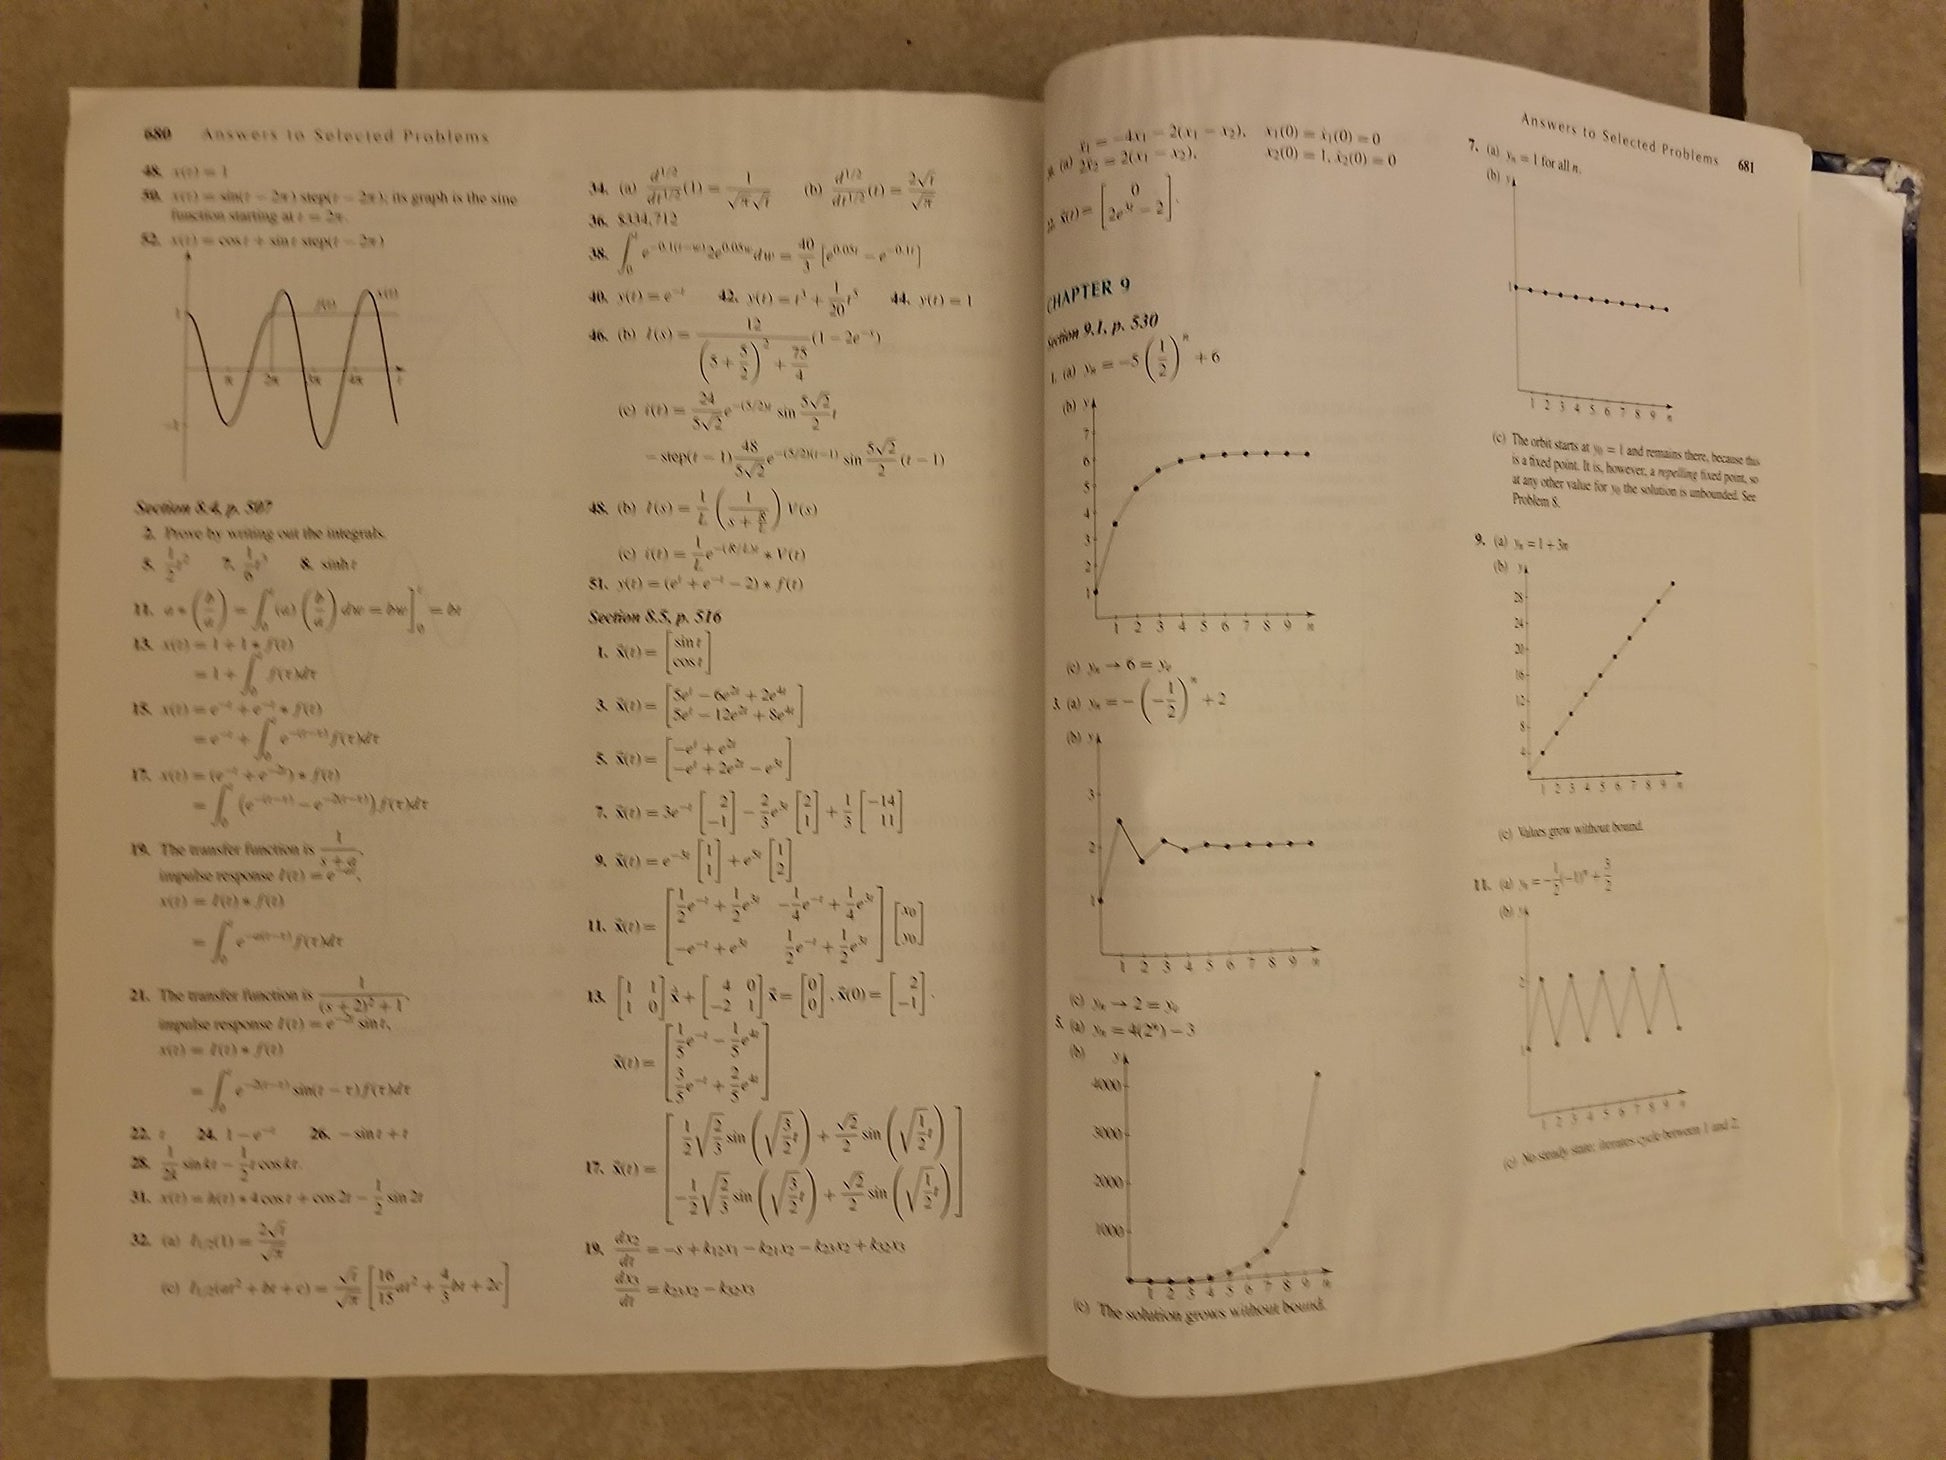 680 Answers to Selected Problems
48. x(t) = 1
50. x(t) = sin(t − 2π) step(t − 2π); its graph is the sine
function starting at t = 2π.
52. x(t) = cos t + sin t step(t − 2π)
1
f(t)
x(t)
π 2π 3π 4π t
−1
Section 8.4, p. 507
2. Prove by writing out the integrals.
5. 1/2 t² 7. 1/6 t³ 8. sinh t
11. a * (b/a) = ∫₀ᵗ (a) (b/a) dw = bw]₀ᵗ = bt
13. x(t) = 1 + 1 * f(t)
= 1 + ∫₀ᵗ f(τ)dτ
15. x(t) = e^{−t} + e^{−t} * f(t)
= e^{−t} + ∫₀ᵗ e^{−(t−τ)} f(τ)dτ
17. x(t) = (e^{−t} + e^{−2t}) * f(t)
= ∫₀ᵗ (e^{−(t−τ)} − e^{−2(t−τ)}) f(τ)dτ
19. The transfer function is 1/(s + a),
impulse response I(t) = e^{−at},
x(t) = I(t) * f(t)
= ∫₀ᵗ e^{−a(t−τ)} f(τ)dτ
21. The transfer function is 1/((s + 2)² + 1),
impulse response I(t) = e^{−2t} sin t,
x(t) = I(t) * f(t)
= ∫₀ᵗ e^{−2(t−τ)} sin(t − τ) f(τ)dτ
22. t 24. 1 − e^{−t} 26. − sin t + t
28. 1/2k sin kt − 1/2 t cos kt.
31. x(t) = h(t) * 4 cos t + cos 2t − 1/2 sin 2t
32. (a) I_{1/2}(1) = 2√t/√π
(c) I_{1/2}(at² + bt + c) = √t/√π [16/15 at² + 4/3 bt + 2c]
34. (a) d^{1/2}/dt^{1/2} (1) = 1/(√π √t) (b) d^{1/2}/dt^{1/2} (t) = 2√t/√π
36. $334,712
38. ∫₀ᵗ e^{−0.1(t−w)} 2e^{0.05w} dw = 40/3 [e^{0.05t} − e^{−0.1t}]
40. y(t) = e^{−t} 42. y(t) = t³ + 1/20 t⁵ 44. y(t) = 1
46. (b) I(s) = 12/((s + 5/2)² + 75/4) (1 − 2e^{−s})
(c) i(t) = 24/(5√2) e^{−(5/2)t} sin 5√2/2 t
− step(t − 1) 48/(5√2) e^{−(5/2)(t−1)} sin 5√2/2 (t − 1)
48. (b) I(s) = 1/L (1/(s + R/L)) V(s)
(c) i(t) = 1/L e^{−(R/L)t} * V(t)
51. y(t) = (e^t + e^{−t} − 2) * f(t)
Section 8.5, p. 516
1. x⃗(t) = [sin t
cos t]
3. x⃗(t) = [5e^t − 6e^{2t} + 2e^{4t}
5e^t − 12e^{2t} + 8e^{4t}]
5. x⃗(t) = [−e^t + e^{2t}
−e^t + 2e^{2t} − e^{3t}]
7. x⃗(t) = 3e^{−t} [2 −1] − 2/3 e^{3t} [2 1] + 1/3 [−14 11]
9. x⃗(t) = e^{−3t} [1 1] + e^{5t} [1 2]
11. x⃗(t) = [1/2 e^{−t} + 1/2 e^{3t} −1/4 e^{−t} + 1/4 e^{3t}
−e^{−t} + e^{3t} 1/2 e^{−t} + 1/2 e^{3t}] [x₀ y₀]
13. [1 1; 1 0] x⃗̇ + [4 0; −2 1] x⃗ = [0 0], x⃗(0) = [2 −1].
x⃗(t) = [1/5 e^{−t} − 1/5 e^{4t}
3/5 e^{−t} + 2/5 e^{4t}]
17. x⃗(t) = [1/2 √(2/3) sin (√(3/2) t) + √2/2 sin (√(1/2) t)
−1/2 √(2/3) sin (√(3/2) t) + √2/2 sin (√(1/2) t)]
19. dx₂/dt = −s + k₁₂x₁ − k₂₁x₂ − k₂₃x₂ + k₃₂x₃
dx₃/dt = k₂₃x₂ − k₃₂x₃
Answers to Selected Problems 681
(a) ẍ₁ = −4x₁ − 2(x₁ − x₂), x₁(0) = ẋ₁(0) = 0
2ẍ₂ = 2(x₁ − x₂), x₂(0) = 1, ẋ₂(0) = 0
x⃗(t) = [0
2e^{3t} − 2].
CHAPTER 9
Section 9.1, p. 530
1. (a) yₙ = −5 (1/2)ⁿ + 6
(b) y
7
6
5
4
3
2
1
1 2 3 4 5 6 7 8 9 n
(c) yₙ → 6 = yₑ
3. (a) yₙ = − (−1/2)ⁿ + 2
(b) y
3
2
1
1 2 3 4 5 6 7 8 9 n
(c) yₙ → 2 = yₑ
5. (a) yₙ = 4(2ⁿ) − 3
(b) y
4000
3000
2000
1000
1 2 3 4 5 6 7 8 9 n
(c) The solution grows without bound.
7. (a) yₙ = 1 for all n.
(b) y
1
1 2 3 4 5 6 7 8 9 n
(c) The orbit starts at y₀ = 1 and remains there, because this
is a fixed point. It is, however, a repelling fixed point, so
at any other value for y₀ the solution is unbounded. See
Problem 8.
9. (a) yₙ = 1 + 3n
(b) y
28
24
20
16
12
8
4
1 2 3 4 5 6 7 8 9 n
(c) Values grow without bound.
11. (a) yₙ = −1/2 (−1)ⁿ + 3/2
(b) y
2
1
1 2 3 4 5 6 7 8 9 n
(c) No steady state; iterates cycle between 1 and 2.